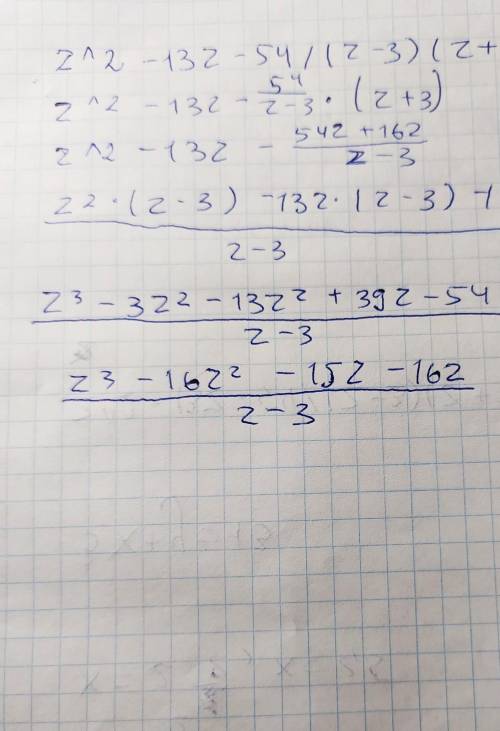 z^2 - 13z - 54 / (z - 3) ( z +
z^2 - 13z - 54/(z - 3) · ( z + 3)
z^2 - 13z - (54z + 162)/(z - 3)
(z² · (z - 3) - 13z · (z - 3) - (
z - 3
z³ - 3z² - 13z² + 39z - 54
z - 3
z³ - 16z² - 15z - 162
z - 3